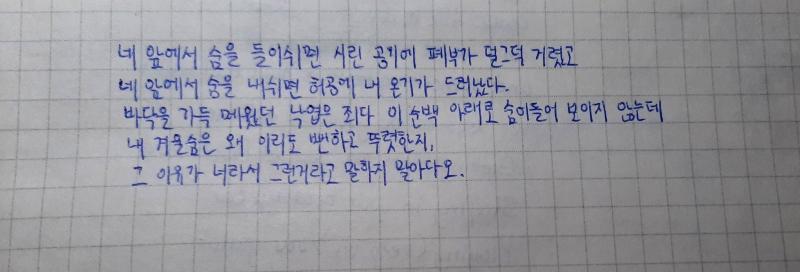 네 앞에서 숨을 들이쉬면 시린 공기에 폐부가 덜그덕 거렸고
네 앞에서 숨을 내쉬면 허공에 내 온기가 드러났다.
바닥을 가득 메웠던 낙엽은 죄다 이 순백 아래로 숨어들어 보이지 않는데
내 겨울숨은 왜 이리도 뻔하고 뚜렷한지,
그 이유가 너라서 그런거라고 말하지 말아다오.